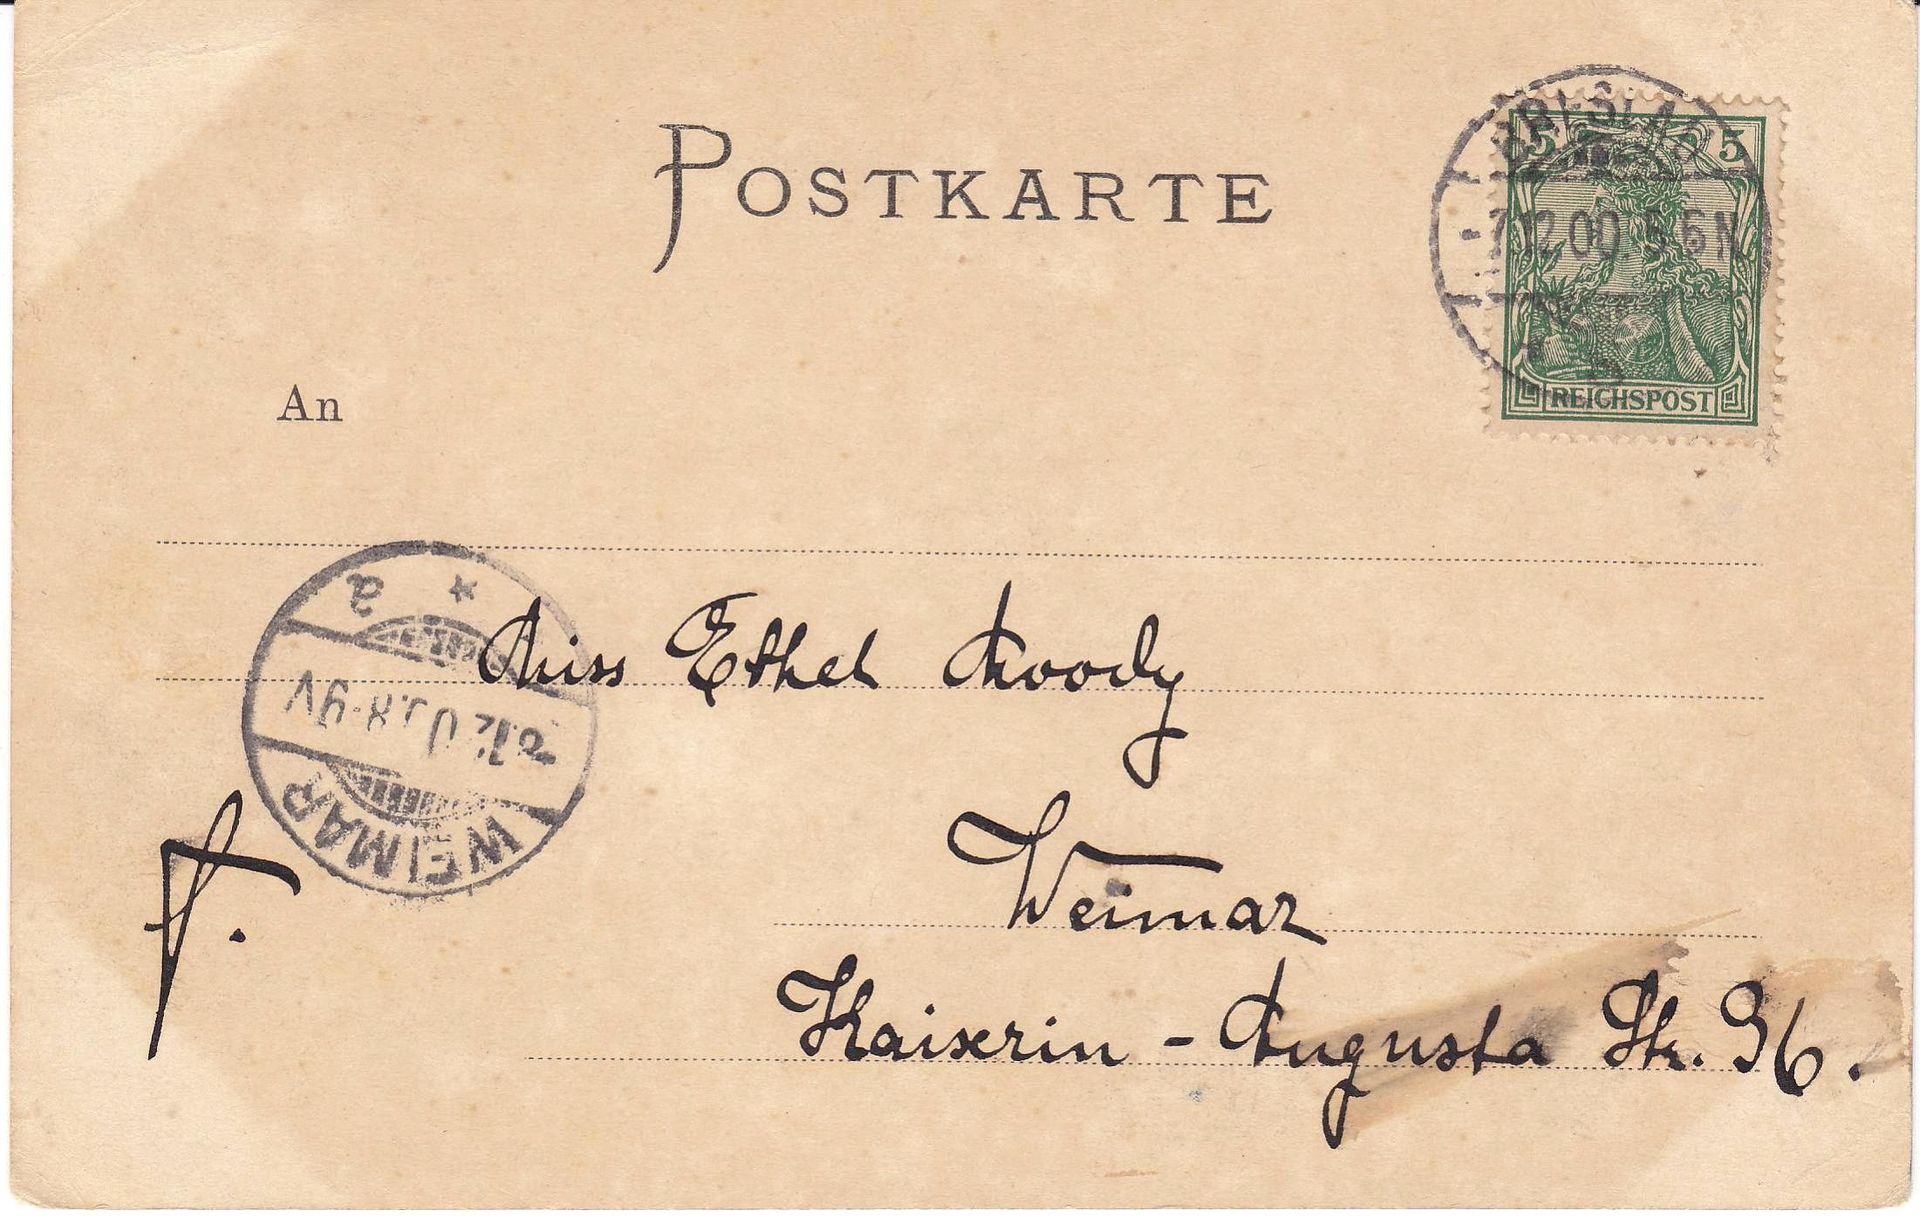 POSTKARTE
5 5
BRESLAU
7.12.00. 5-6N
REICHSPOST
An
a *
8.12.0 .8-9V
WEIMAR
Miss Ethel Moody
F.
Weimar
Kaiserin-Augusta Str. 36.